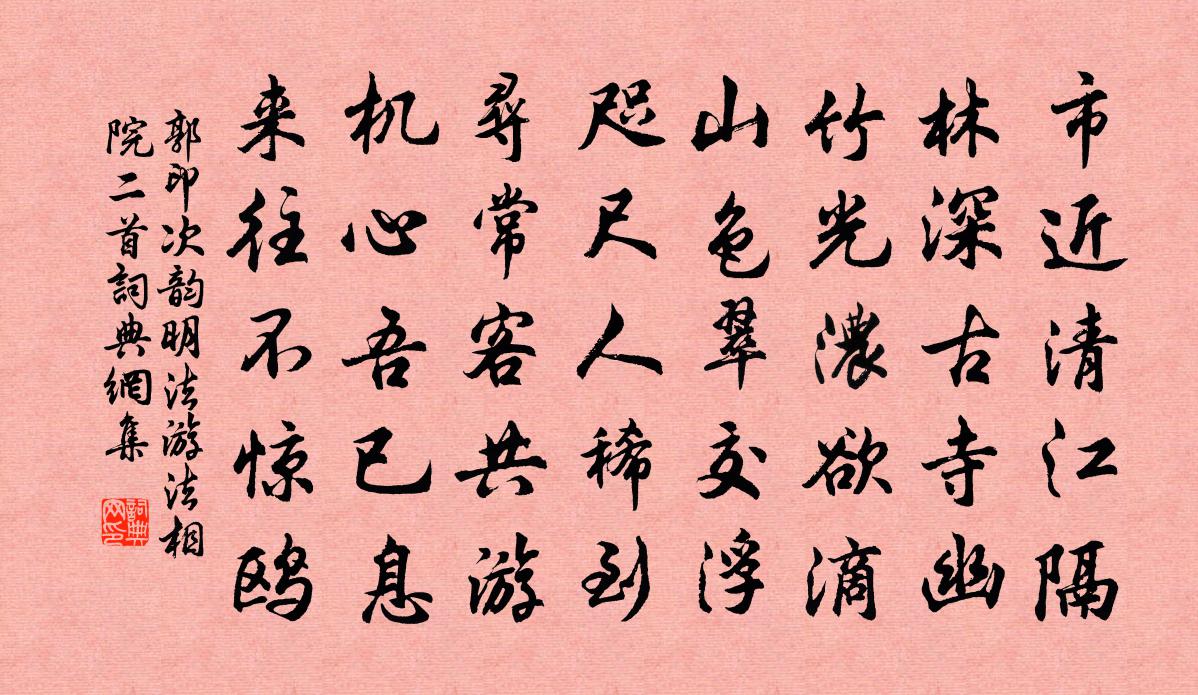 市近清江隔
林深古寺幽
竹光濃欲滴
山色翠交浮
咫尺人稀到
尋常客共游
机心吾已息
来往不惊鸥
郭印次韵明法游法相
院二首詞典網集
詞典
网印